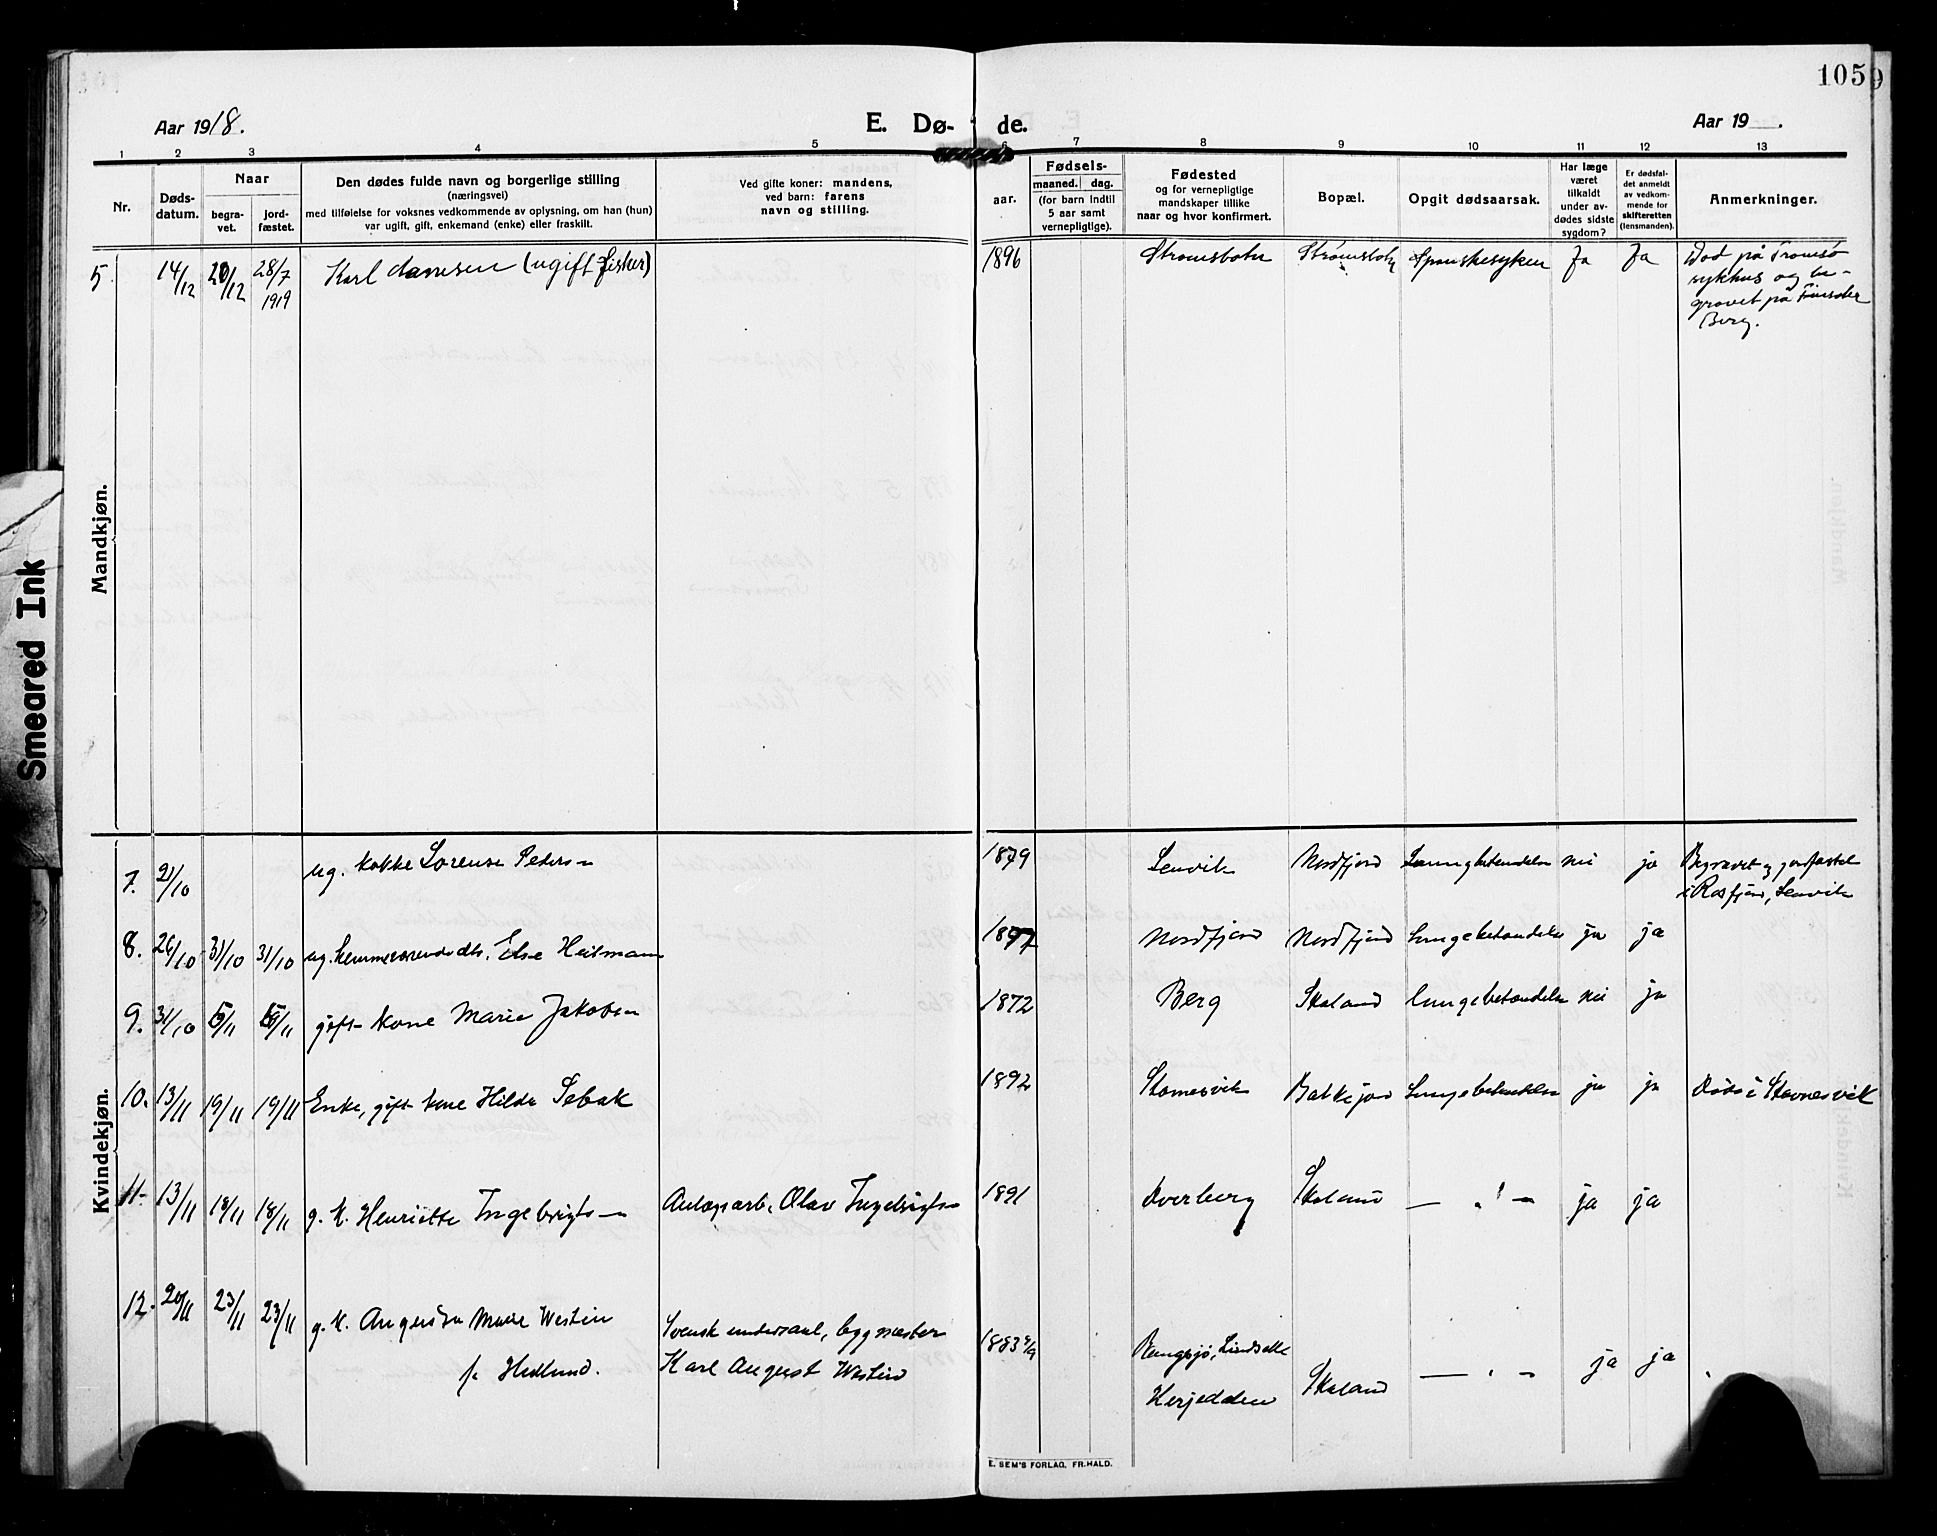 105
Aar 1918.
E. Dø-
de.
Aar 19 .
1 2 3 4 5 6 7 8 9 10 11 12 13
Nr.
Døds-
datum.
Naar
begra-
vet.
jord-
fæstet.
Den dødes fulde navn og borgerlige stilling
(næringsvei)
med tilføielse for voksnes vedkommende av oplysning, om han (hun)
var ugift, gift, enkemand (enke) eller fraskilt.
Ved gifte koner: mandens,
ved barn: farens
navn og stilling.
Fødsels-
aar.
maaned. dag.
(for barn indtil
5 aar samt
vernepligtige).
Fødested
og for vernepligtige
mandskaper tillike
naar og hvor konfirmert.
Bopæl.
Opgit dødsaarsak.
Har læge
været
tilkaldt
under av-
dødes sidste
sygdom?
Er dødsfal-
det anmeldt
av vedkom-
mende for
skifteretten
(lensmanden).
Anmerkninger.
Mandkjøn.
5 14/12 20/12 28/7 1919 Karl (ugift fisker) 1896 Strømsbotn Strømsbotn Spanskesyken Ja Ja Død på Tromsø
sykhus og be-
gravet på
Berg.
Kvindekjøn.
7. 21/10 ug. kokke Lorense Peders- 1879 Lenvik Nordfjord Lungebetændelse nei ja Begravet og jordfæstet
i Rosfjord, Lenvik
8. 26/10 31/10 31/10 ug. Else Heitmann 1897 Nordfjord Nordfjord Lungebetændelse ja ja
9. 31/10 5/11 5/11 gift kone Marie Jakobs- 1872 Berg Skaland lungebetændelse nei ja
10. 13/11 19/11 19/11 Enke, gift kone Hilda Sebak 1892 Stønesvik Balkejord Lungebetændelse ja ja Døde i Stønesvik
11- 13/11 18/11 18/11 g. k. Henriette Ingebrigts- Anlægsarb. Olav Ingebrigts- 1891 Dverberg Skaland — " — ja ja
12- 20/11 23/11 23/11 g. k. Marie Westin
f. Hedlund.
Svensk undersaat, bygmester
Karl August Westin
1883 4/9
Herjedalen
Skaland — " — ja ja
E. SEM'S FORLAG, FR.HALD.
Smeared Ink